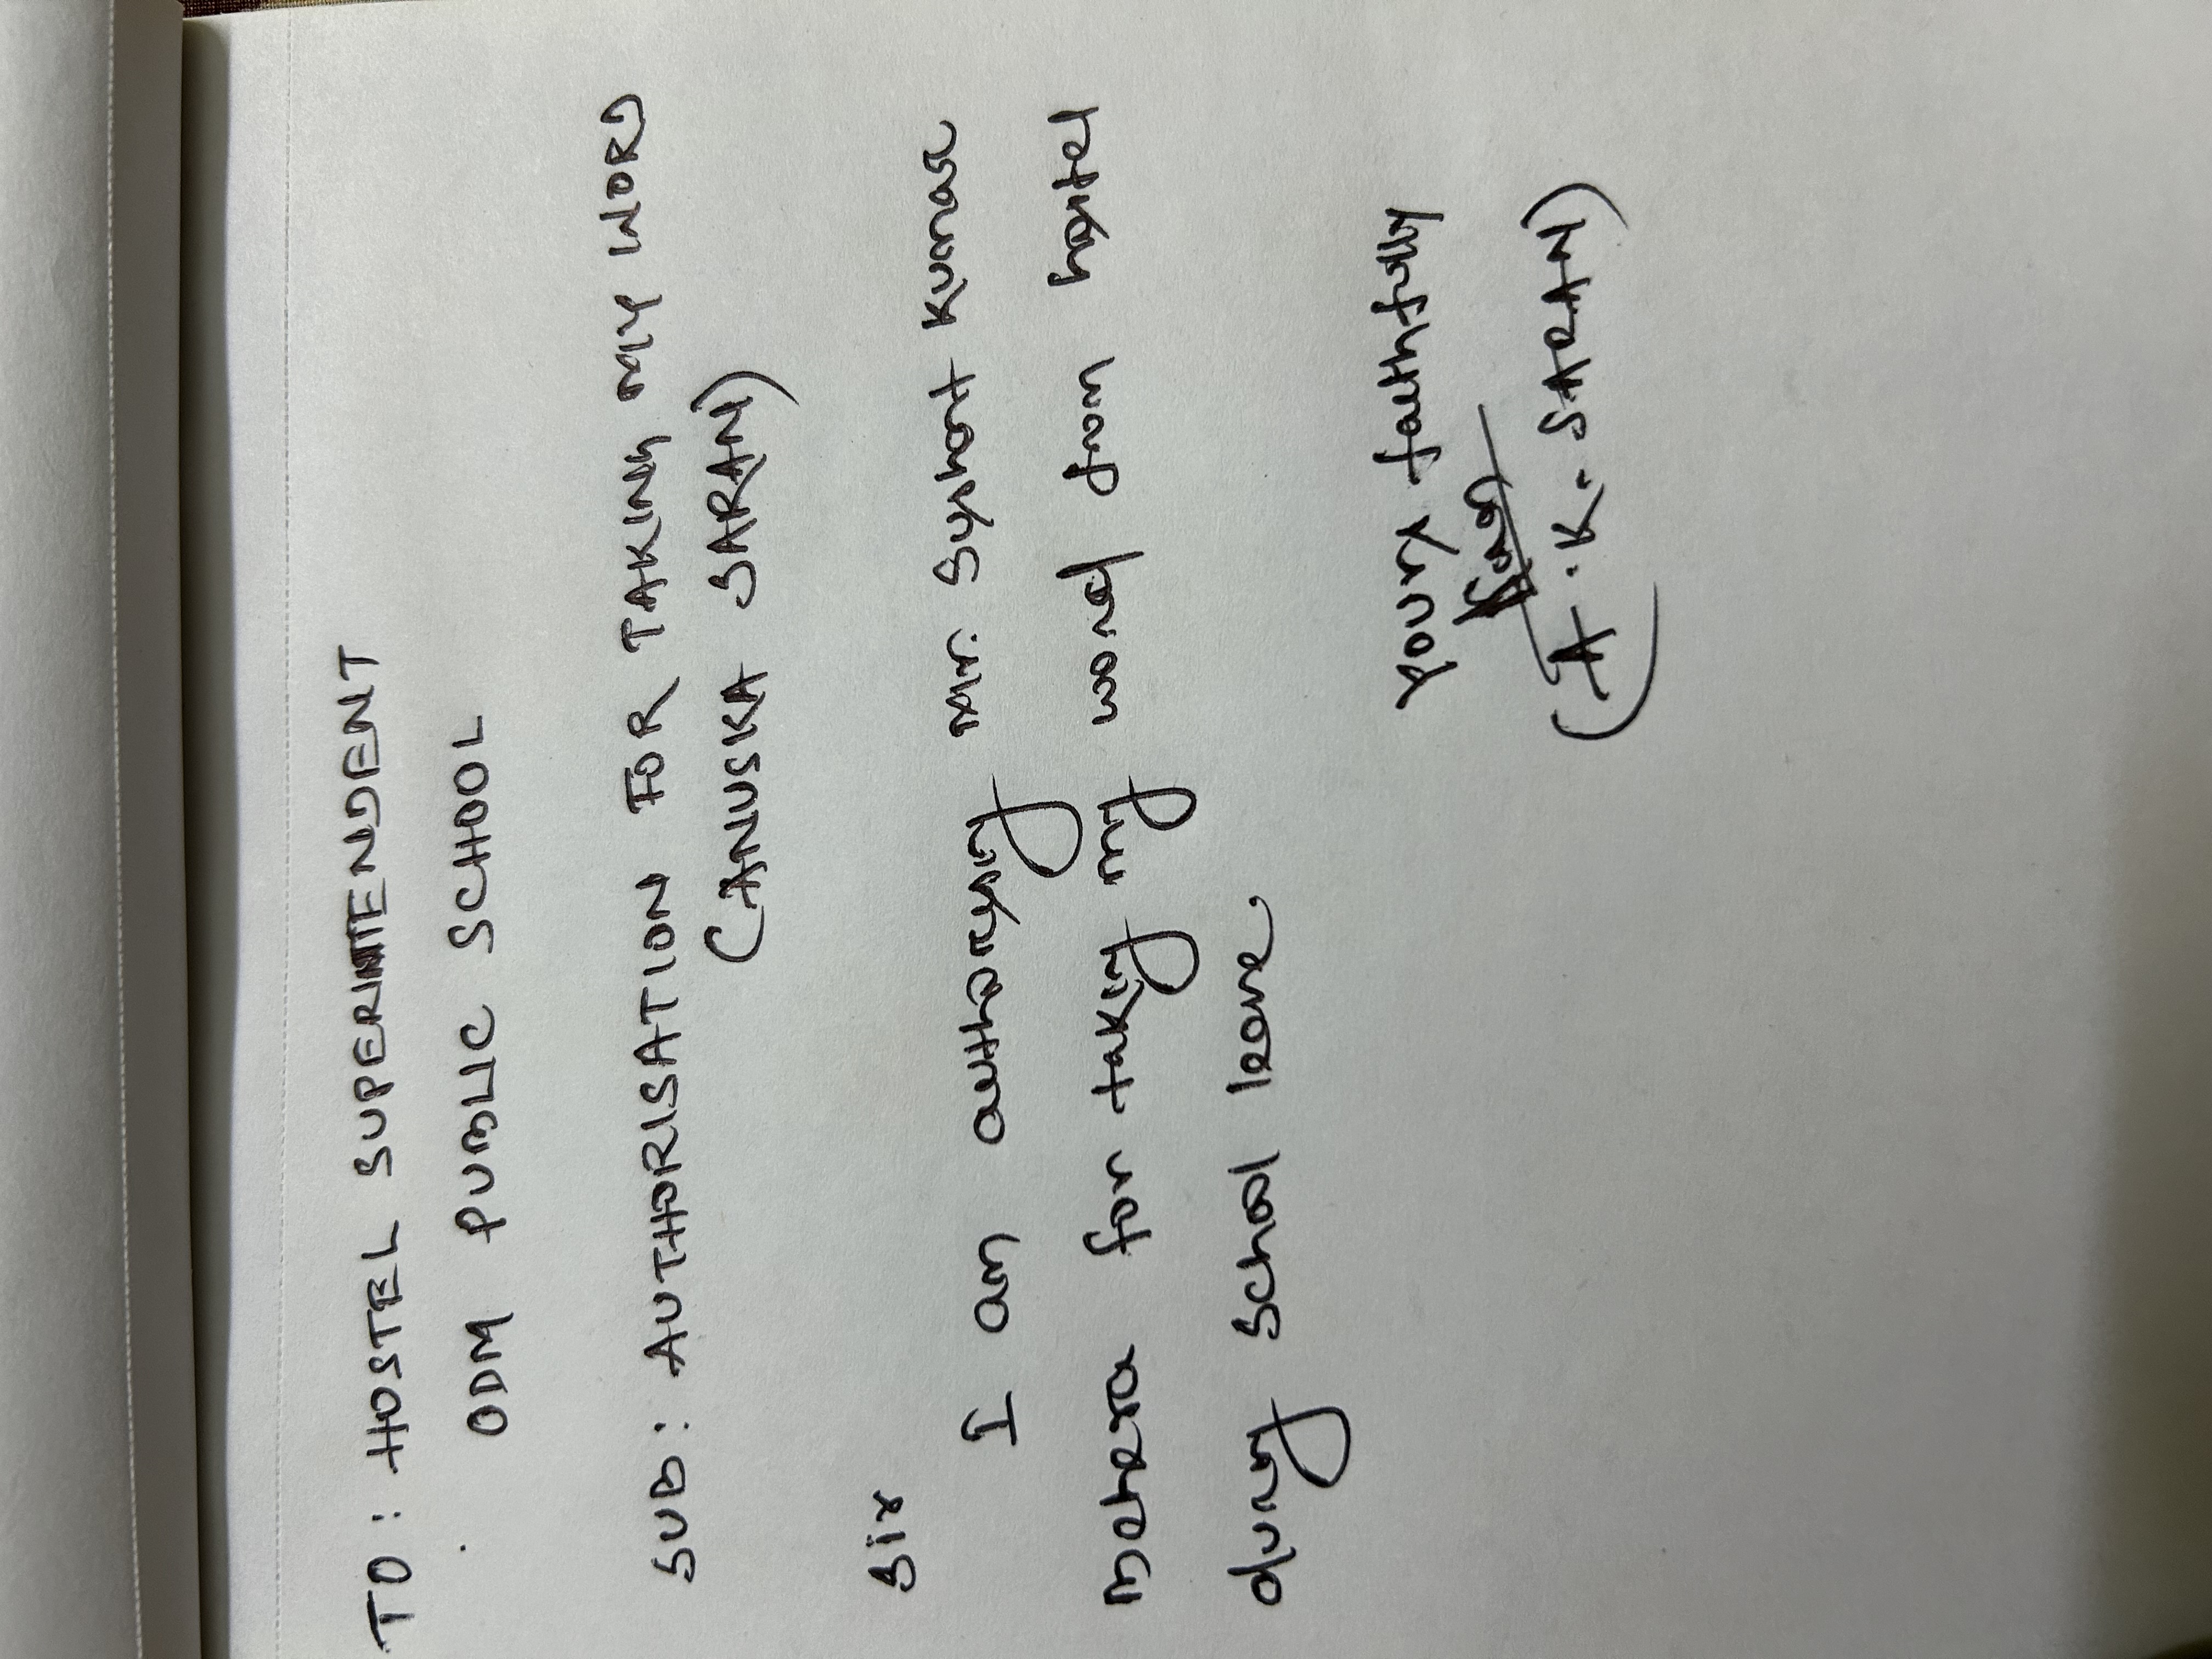 TO : HOSTEL SUPERINTENDENT
ODM PUBLIC SCHOOL
SUB : AUTHORISATION FOR TAKING MY WORD
(ANUSKA SARAN)
Sir
I am authorising Mr. Sushant Kumar
Behera for taking my word from hostel
during School leave.
Yours faithfully
(A.K. SARAN)